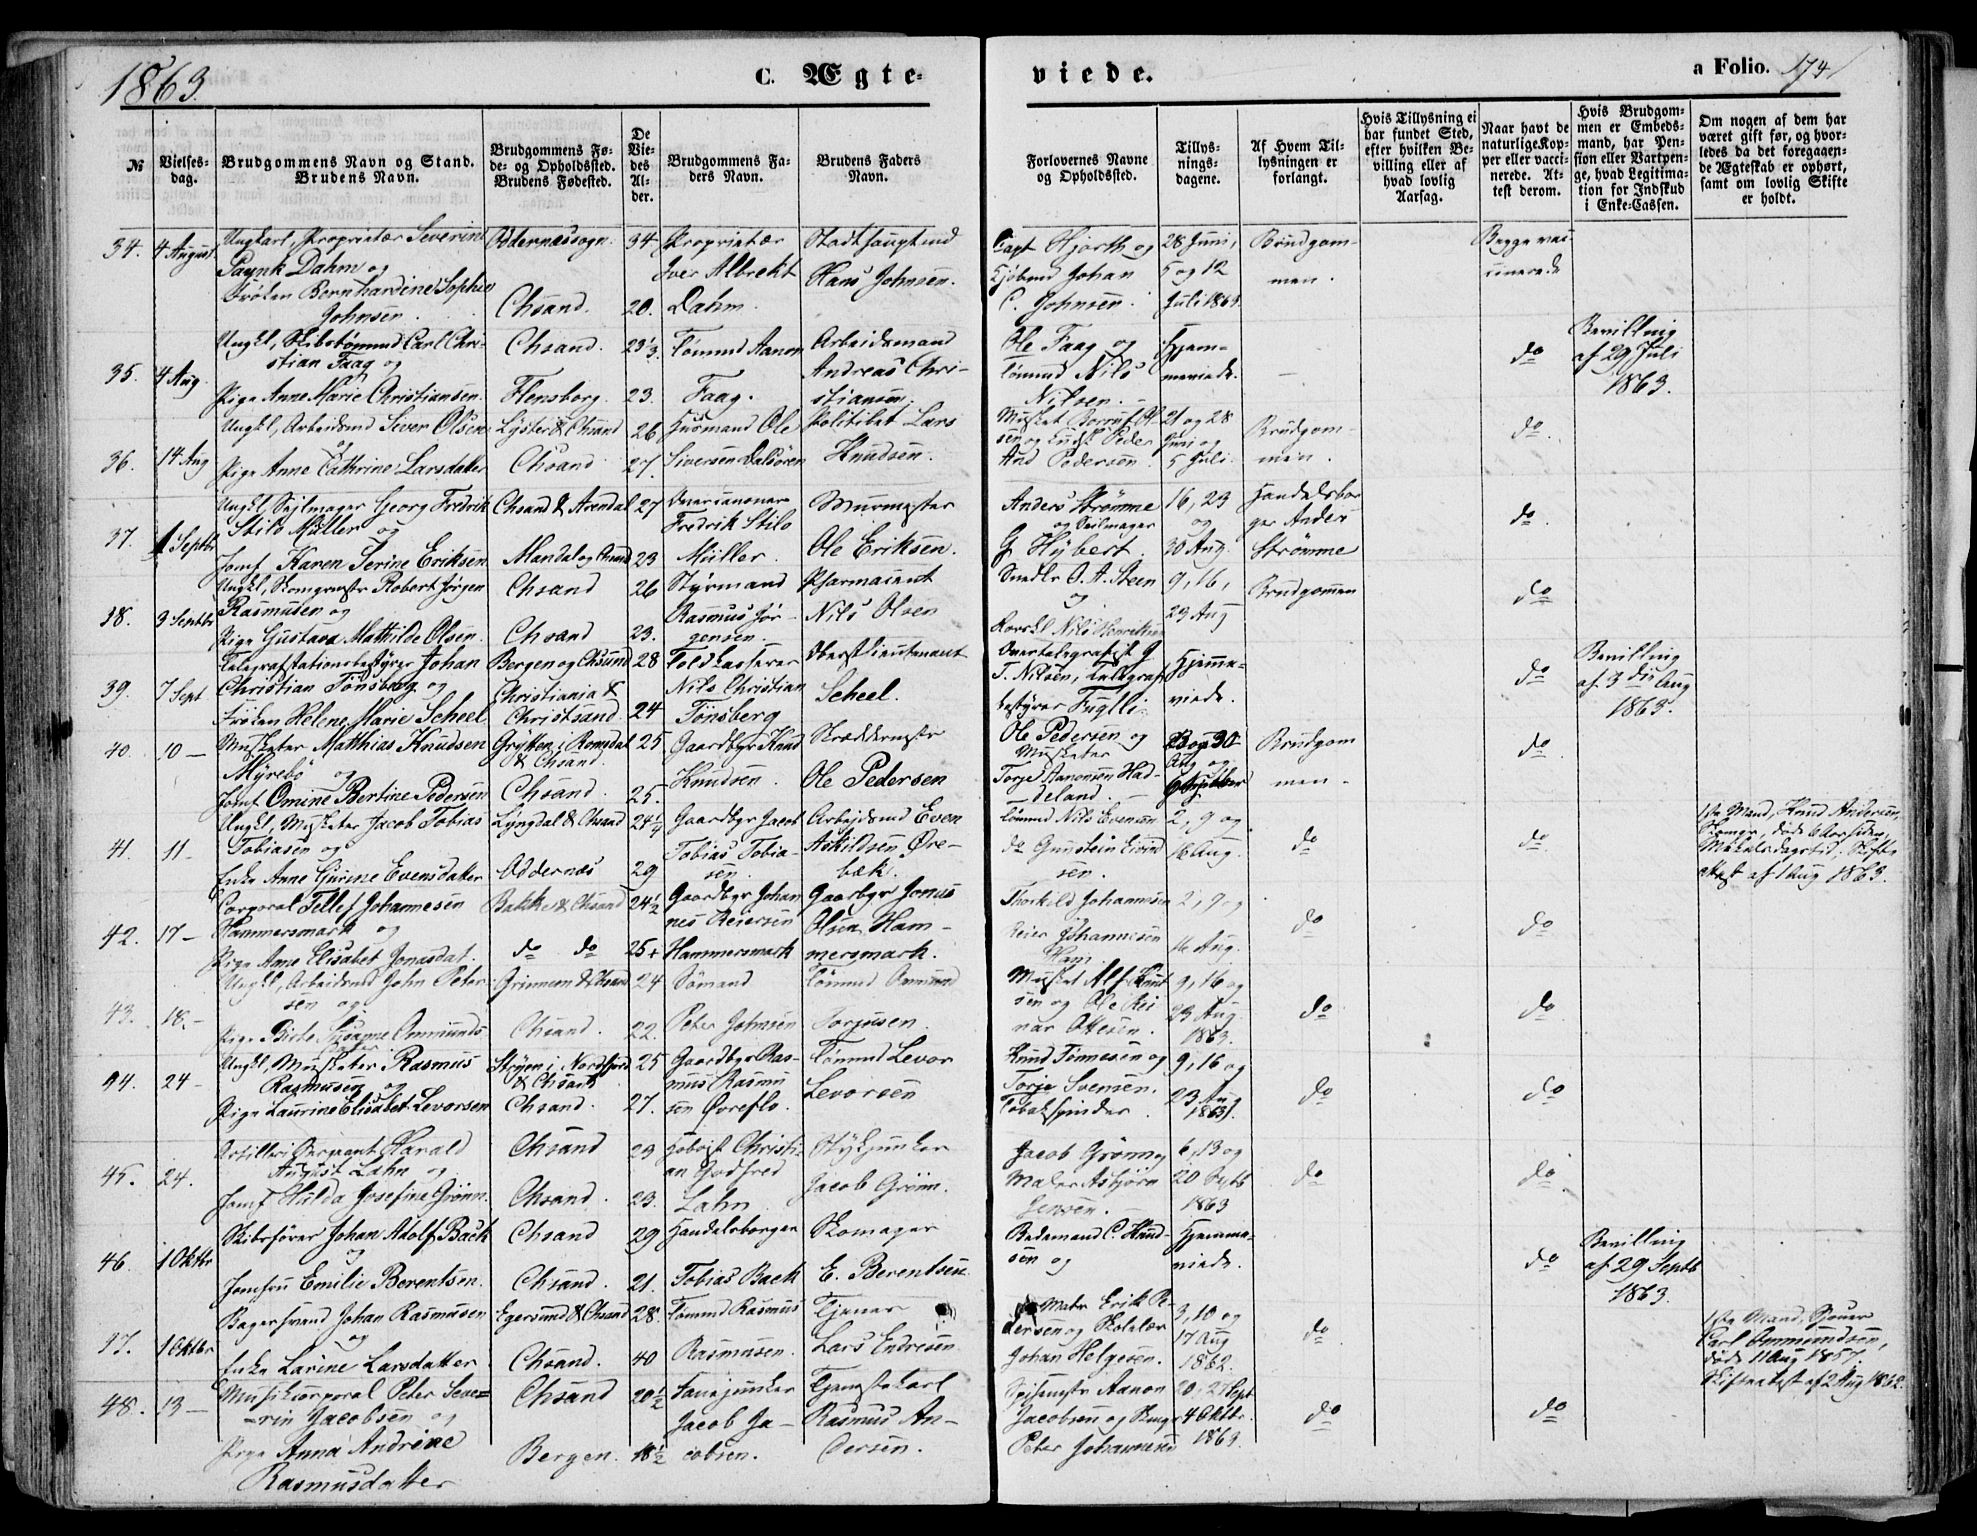 1863.
C. Ægte-
viede.
a Folio. 174
№
Vielses-
dag.
Brudgommens Navn og Stand.
Brudens Navn.
Brudgommens Fø-
de- og Opholdssted.
Brudens Fødested.
De
Vie-
des
Al-
der.
Brudgommens Fa-
ders Navn.
Brudens Faders
Navn.
Forlovernes Navne
og Opholdssted.
Tillys-
nings-
dagene.
Af Hvem Til-
lysningen er
forlangt.
Hvis Tillysning ei
har fundet Sted,
efter hvilken Be-
villing eller af
hvad lovlig
Aarsag.
Naar havt de
naturlige Kop-
per eller vacci-
nerede. At-
test derom.
Hvis Brudgom-
men er Embeds-
mand, har Pen-
sion eller Vartpen-
ge, hvad Legitima-
tion for Indskud
i Enke-Cassen.
Om nogen af dem har
været gift før, og hvor-
ledes da det foregaaen-
de Ægteskab er ophørt,
samt om lovlig Skifte
er holdt.
34. 4 August
Ungkarl, Proprietær Severin
Dahm og
Frøken Bernhardine Sophie
Johnsen.
Oddernessogn. 34
Chsand. 20.
Proprietær
Iver Albrekt
Dahm.
Stadthauptmd
Hans Johnsen.
Capt Hjorth og
Kjøbmd Johan
C. Johnsen.
28 Juni,
5 og 12
Juli 1863.
Brudgom-
men.
Begge vac-
cinerede
35. 4 Aug.
Ungkl, Skibstømmd Carl Chri-
stian Faag og
Pige Anne Marie Christiansen.
Chsand. 23 1/3
Flensborg. 23.
Tømmd Aanon
Faag.
Arbeidsmand
Andreas Chri-
stiansen.
Ole Faag og
Tømmd Nils
Nilsen.
Hjem-
meviede.
do
Bevilling
af 29 Juli
1863.
36. 14 Aug
Ungkl, Arbeidsmd Siver Olsen
og
Pige Anne Cathrine Larsdatter
Lyster & Chsand 26
Chsand 27
Husmand Ole
Siversen Dalsøren
Politibet Lars
Knudsen.
And Pedersen.
21 og 28
Juni og
5 Juli.
Brudgom-
men.
do.
37. 1 Septbr
Ungkl Seilmager Georg Fredrik
Stilo Müller og
Jomf Karen Serine Eriksen
Chsand & Arendal 27
Mandal og Chsand 23
Fredrik Stilo
Müller.
Murmester
Ole Eriksen.
Anders Strømme
og Seilmager
G Hybert.
16, 23
og
30 Aug.
Handelsbor
ger Anders
Strømme
do.
38. 3 Septbr
Ungkl, Skomgrmstr Robert Jørgen
Rasmusen og
Pige Gustava Mathilde Olsen.
Chsand 26
Chsand 23.
Styrmand
Rasmus Jør-
gensen.
Nils Olsen
Snedkr O. A. Steen
og
9, 16,
23 Aug
Brudgommen
do
39. 7 Sept
Telegrafstationsbestyrer Johan
Christian Tønsberg og
Frøken Helene Marie Scheel
Bergen og Chsand 28
Christiania &
Christsand 24
Toldkasserer
Nils Christian
Tønsberg
Oberstlieutenant
Scheel.
Overtelegrafist G
T. Nilsen, Telegraf
bestyrer
Hjemme-
viede.
do
Bevilling
af 3 die Aug
1863.
40. 10 —
Musketer Matthias Knudsen
Myrebø og
Jomf Omine Bertine Pedersen
Grytten i Romsdal 25
& Chsand.
Chsand. 25.
Gaardbgr Knud
Knudsen.
Skreddermstr
Ole Pedersen
Ole Pedersen og
Musketer
Torje Aanonsen Had-
deland.
23 og 30
Aug og
6 Septber
Brudgom
men.
do
41. 11 —
Ungkl, Musketer Jacob Tobias
Tobiasen og
Enke Anne Gurine Evensdatter
Lyngdal & Chsand 24 1/4
Oddernes 29
Gaardbgr Jacob
Tobias Tobia-
sen.
Arbeidsmd Even
Askildsen Øre-
bæk.
Tømmd Nils Evensen
do Gunstein Eivind
sen.
2, 9 og
16 Aug.
do
do.
1ste Mand, Knud Andersen,
Skomgr, døde 6 Aar siden,
Skifte
attest af 1 Aug 1863.
42. 17 —
Corporal Tellef Johannesen
Hammersmark og
Pige Anne Elisabet Jonasdat.
Bakke & Chsand 24 1/2
do do 25 +
Gaardbgr Johan
nes Reiersen
Hammersmark
Gaardbgr Jonas
Olsen Ham-
mersmark.
Thorkild Johannesen
Reier Johannesen
Ham.
2, 9 og
16 Aug.
do
do
43. 18. —
Ungkl, Arbeidsmd John Peter
sen og
Pige Birte Susanne Ommunds
datter
Grimmen & Chsand 24
Chsand. 22.
Sømand
Peter Johnsen
Tømmd Ommund
Torjusen.
Musket Alf Knut
sen og Ole Rei
nar Ottesen.
9, 16 og
23 Aug
1863.
do
do
44. 24 —
Ungkl, Musketer Rasmus
Rasmusen og
Pige Laurine Elisabet Levorsen
Stryen i Nordfjord 25
& Chsand
Chsand. 27.
Gaardbgr Ras-
mus Rasmu
sen Øvreflo.
Tømmd Levor
Levorsen
Knud Tønnesen og
Torje Svensen.
Tobakspinder.
9, 16 og
23 Aug
1863.
do
do
45. 24.
Artilleri Sergeant Harald
August Lahn og
Jomf Hilda Josefine Grønn.
Chsand 23
Chsand. 23.
Hoboist Christi-
an Godfred
Lahn
Stykjunker
Jacob Grønn.
Jacob Grønn og
Maler Asbjørn
Jensen.
6, 13 og
20 Septb
1863
do
do
46. 1 Oktbr
Skibsfører Johan Adolf Back
og
Jomfru Emilie Berentsen.
Chsand 29
Chsand. 21.
Handelsborger
Tobias Back
Skomager
E. Berentsen
Bademand C. Knud-
sen og
Hjemme-
viede.
do
Bevilling
af 29 Septb
1863.
47. 1 Oktbr
Bagersvend Johan Rasmusen
og
Enke Larine Larsdatter
Egersund & Chsand 28.
Chsand. 40
Tømmd Rasmus
Rasmusen.
Tjener
Lars Endresen
Maler Erik Pe-
dersen og Skolelær
Johan Helgesen.
3, 10 og
17 Aug
1862.
do
1ste Mand, Tjener
Carl Ommundsen,
døde 11 Aug 1857,
Skifteattest af 2 Aug 1862.
48. 13 —
Musikcorporal Peter Seve-
rin Jacobsen og
Pige Anna Andrine
Rasmusdatter
Chsand 20 1/2
Bergen. 18 1/2
Fanejunker
Jacob Ja-
cobsen.
Tjenstekarl
Rasmus An-
dersen.
Spisemstr Aanon
Jacobsen og Skmgr
Peter Johannesen
20, 27 Sept
4 Oktbr.
1863.
do
do